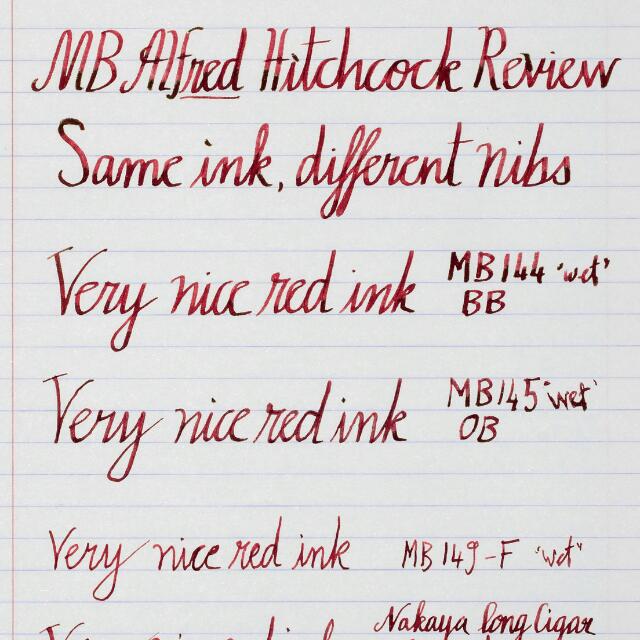 MB Alfred Hitchcock Review
Same ink, different nibs
Very nice red ink MB144 'wet'
BB
Very nice red ink MB145 'wet'
OB
Very nice red ink MB 149-F 'wet'
Nakaya long Cigar